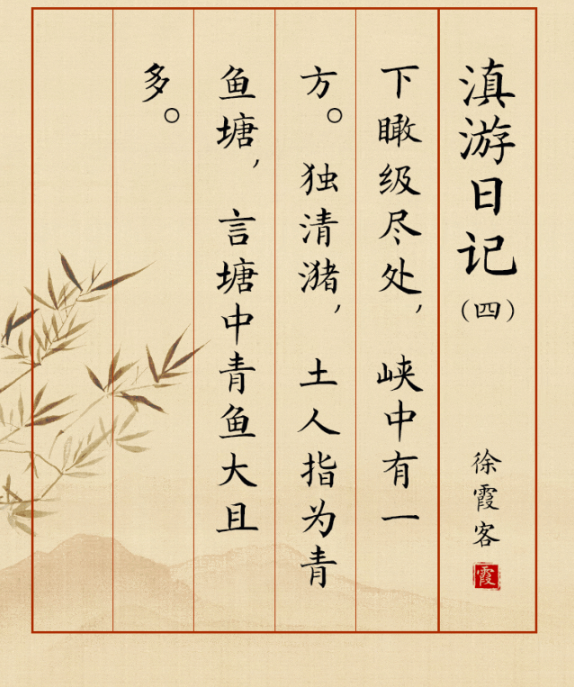 滇游日记
（四）
徐霞客
霞
下瞰级尽处，峡中有一
方。独清潴，土人指为青
鱼塘，言塘中青鱼大且
多。